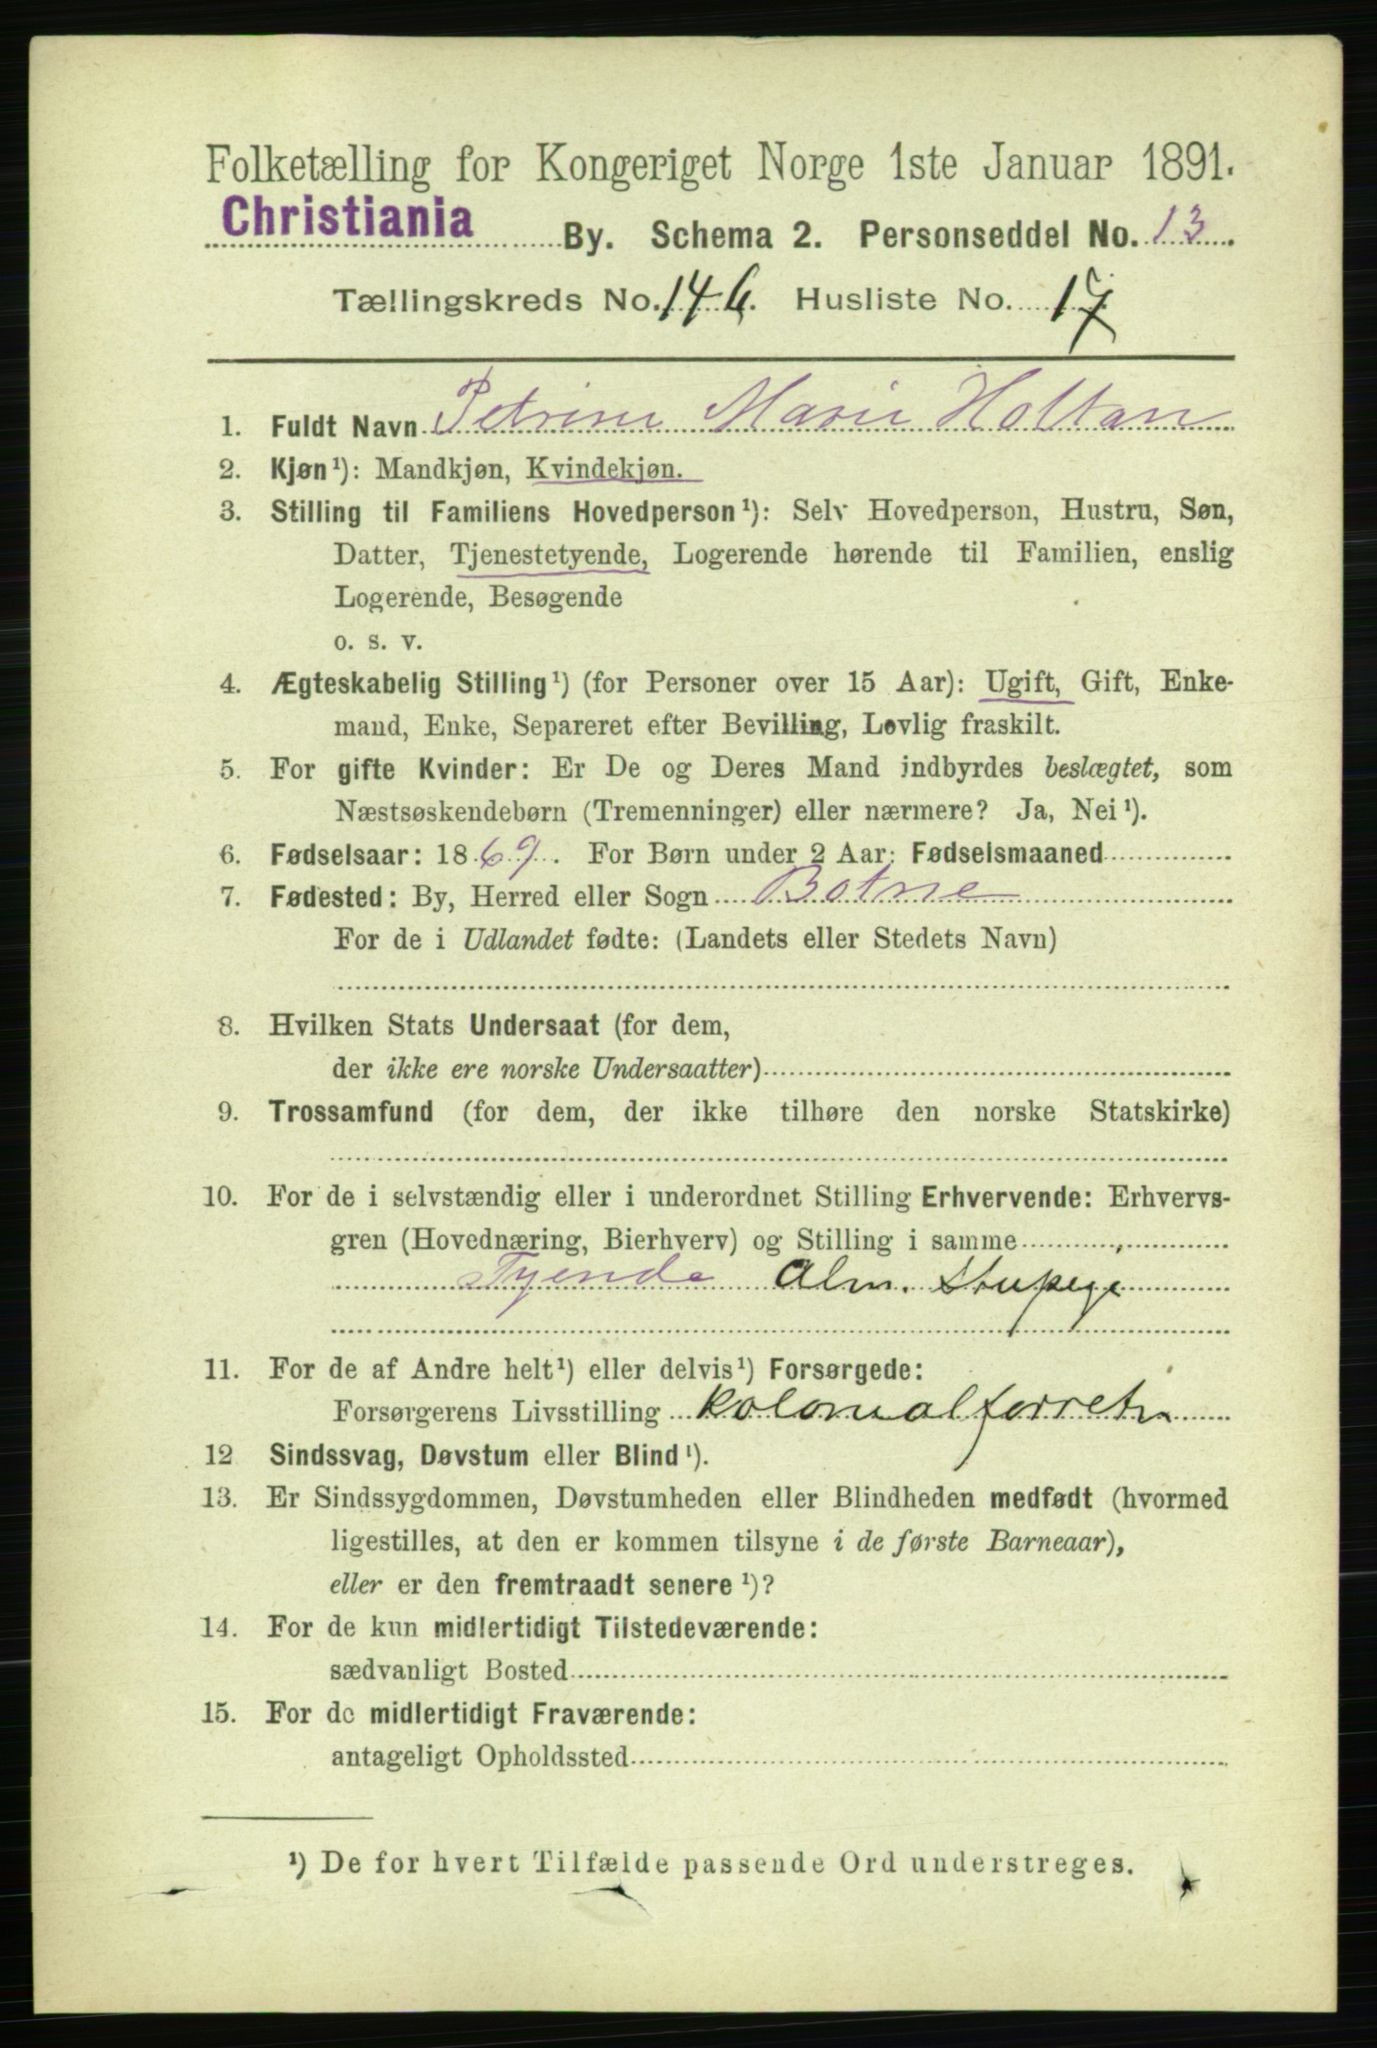 Folketælling for Kongeriget Norge 1ste Januar 1891.
Christiania By. Schema 2. Personseddel No. 13.
Tællingskreds No. 146. Husliste No. 17
1. Fuldt Navn Petrine Marie Holtan
2. Kjøn¹): Mandkjøn, Kvindekjøn.
3. Stilling til Familiens Hovedperson¹): Selv Hovedperson, Hustru, Søn,
Datter, Tjenestetyende, Logerende hørende til Familien, enslig
Logerende, Besøgende
o. s. v.
4. Ægteskabelig Stilling¹) (for Personer over 15 Aar): Ugift, Gift, Enke-
mand, Enke, Separeret efter Bevilling, Lovlig fraskilt.
5. For gifte Kvinder: Er De og Deres Mand indbyrdes beslægtet, som
Næstsøskendebørn (Tremenninger) eller nærmere? Ja, Nei¹).
6. Fødselsaar: 1869. For Børn under 2 Aar: Fødselsmaaned
7. Fødested: By, Herred eller Sogn Botne
For de i Udlandet fødte: (Landets eller Stedets Navn)
8. Hvilken Stats Undersaat (for dem,
der ikke ere norske Undersaatter)
9. Trossamfund (for dem, der ikke tilhøre den norske Statskirke)
10. For de i selvstændig eller i underordnet Stilling Erhvervende: Erhvervs-
gren (Hovednæring, Bierhverv) og Stilling i samme
Tyende Alm. Stupige
11. For de af Andre helt¹) eller delvis¹) Forsørgede:
Forsørgerens Livsstilling
12 Sindssvag, Døvstum eller Blind¹).
13. Er Sindssygdommen, Døvstumheden eller Blindheden medfødt (hvormed
ligestilles, at den er kommen tilsyne i de første Barneaar),
eller er den fremtraadt senere¹)?
14. For de kun midlertidigt Tilstedeværende:
sædvanligt Bosted
15. For de midlertidigt Fraværende:
antageligt Opholdssted
¹) De for hvert Tilfælde passende Ord understreges.